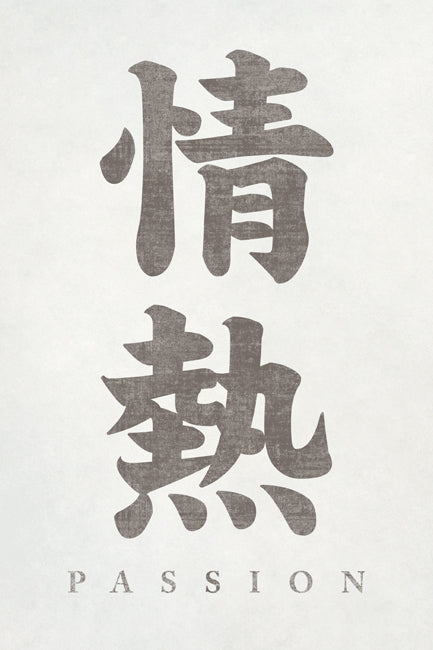 情
熱
PASSION